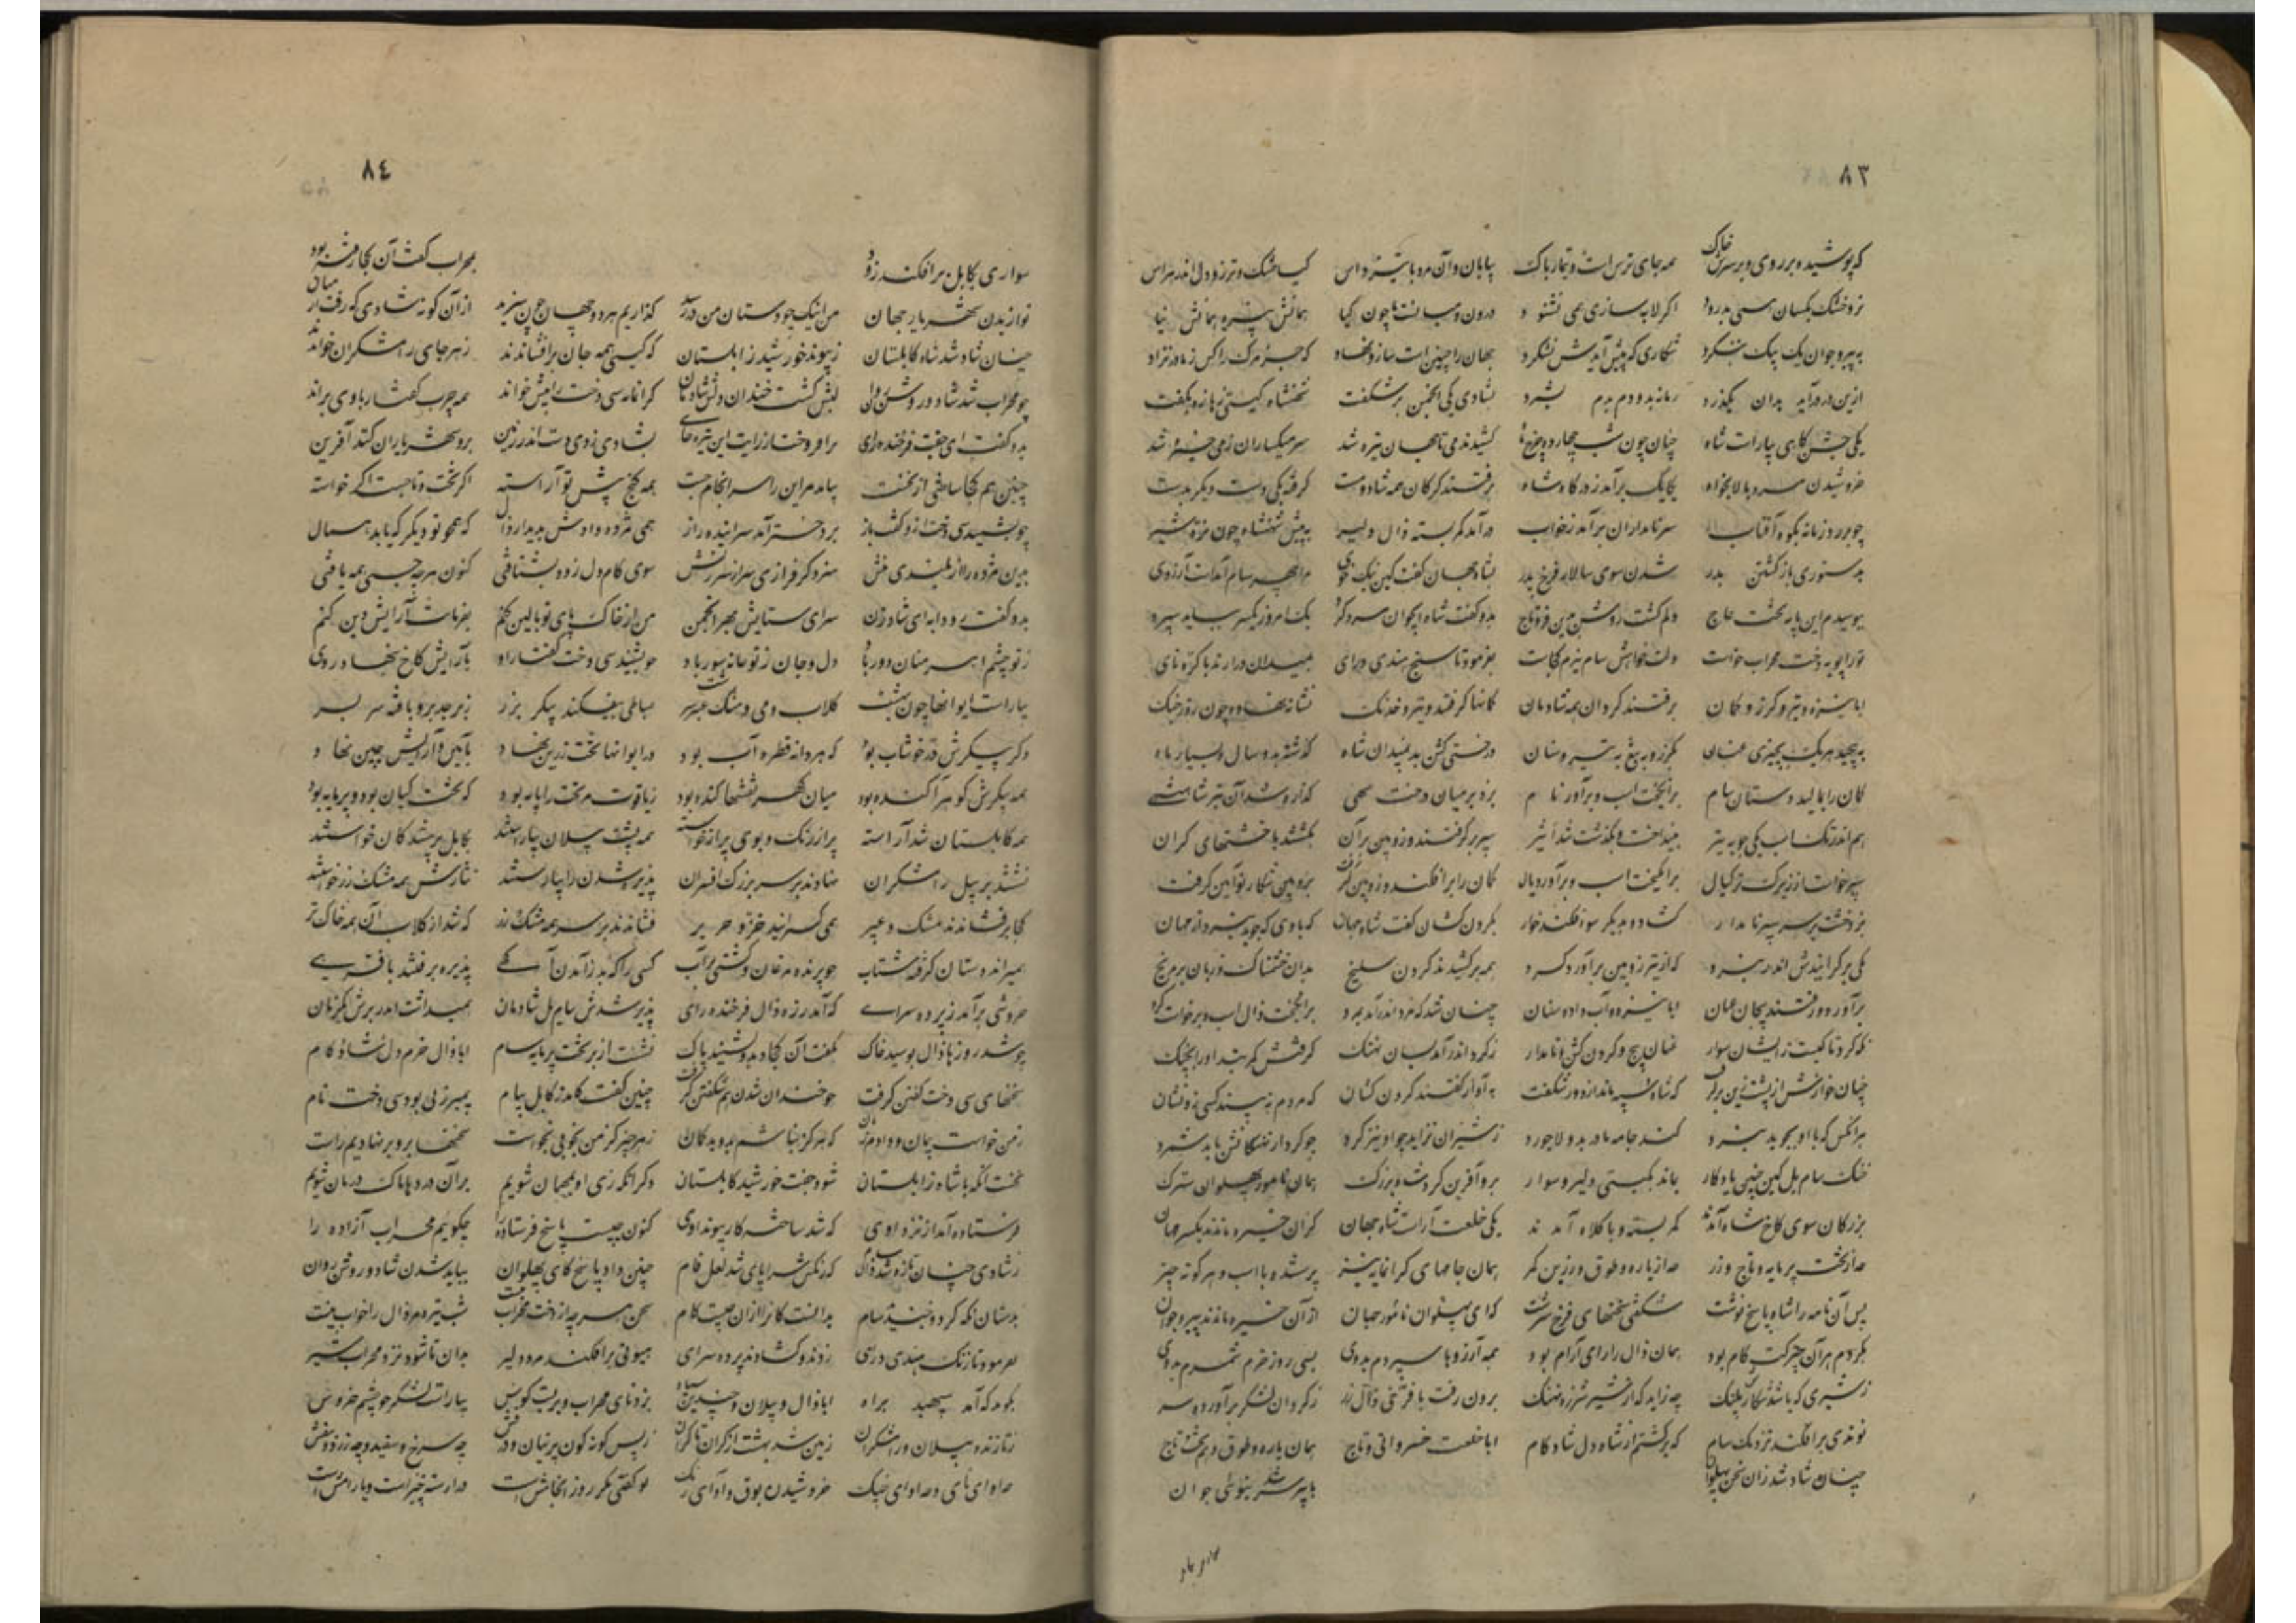 ٨٣
که پوشیده بر روی و بر سرش خاک همه جای ترس است و تیمار باک بیابان و آن مرد با تیز داس گیا خشک و تر زو دل اندر هراس
تر و خشک یکسان همی بدرود اگر لابه سازی همی نشنود درون و میانست ما چون گیا همانش نبیره همانش نیا
به پیر و جوان یک بیک ننگرد شکاری که پیش آیدش بشکرد جهان را چنین است ساز و نهاد که جز مرگ را کس ز مادر نزاد
ازین در درآید بدان بگذرد زمانه بدو دم بدم بشمرد بشادی یکی انجمن بر شگفت شهنشاه گیتی زهازه گرفت
یکی جشن گاهی بیاراست شاه چنان چون شب چهارده چرخ ماه کشیدند می تا جهان تیره شد سر میگساران ز می خیره شد
خروشیدن مرد بالایخواه یکایک برآمد ز درگاه شاه برفتند گردان همه شاد و مست گرفته یکی دست دیگر بدست
چو برزد زبانه ز کوه آفتاب سر نامداران برآمد ز خواب درآمد کمر بسته زال دلیر به پیش شهنشاه چون نره شیر
بدستوری بازگشتن بدر شدن سوی سالار فرخ پدر بشاه جهان گفت کین نیک خوی مرا چهر سام آمدست آرزوی
ببوسیدم این پایه تخت عاج دلم گشت روشن بدین فر و تاج بدو گفت شاه ای جوان مرد گرد یک امروز دیگر بباید سپرد
ترا بویه دخت مهراب خواست دلت خواهش سام نیرم کجاست بفرمود تا سنج و هندی درای بمیدان درارند با کره نای
ابا نیزه و تیر و گرز و کمان برفتند گردان همه شادمان کمانها گرفتند و تیر و خدنگ نشانه نهاده چون روز جنگ
به پیچید هر یک بچیزی عنان بگرز و به تیغ به تیر و سنان درختی گشن بد بمیدان شاه گذشته بدو سال و بسیار ماه
کمان را بمالید دستان سام برانگیخت اسب و برآورد نام بزد بر میان درخت سهی گذاره شد آن تیر شاهنشهی
هم اندر تگ اسب یکی چوبه تیر بینداخت و بگذشت شد اثیر سپر برگرفتند و زوپین بران بگشتند با خشتهای گران
سپر خواست از ریدک ترک زال برانگیخت اسب و برآورد یال کمان را برافکند و زوپین گرفت بزوپین شکار نوآیین گرفت
بزد خشت بر سه سپر نامدار گشاده بدیگر سو افکند خوار بگردن کشان گفت شاه جهان که با وی که جوید نبرد از مهان
یکی برگراییدش اندر نبرد که از تیر زوپین برآورد گرد همه برکشیدند گردن سلیح بدان خشمناک و زبان پر مزیح
برآورد و رفتند پیچان عنان ابا نیزه و آب داده سنان چنان شد که مرد اندر آمد بمرد برانگیخت زال اسب و برخاست گرد
نگه کرد تا کیست زیشان سوار عنان پیچ و گردن کش و نامدار ز گرد اندر آمد بسان نهنگ گرفتش کمربند او را بچنگ
چنان خوارش از پشت زین برگرفت که شاه و سپه ماند ازو در شگفت به آواز گفتند گردن کشان که مردم نبیند کسی زو نشان
هر آنکس که با او بجوید نبرد کند جامه مادر بدو لاجورد ز شیران نزاید چو او نیز گرد چو گرد از نهنگانش باید شمرد
خنک سام یل کین چنین یادگار بماند بگیتی دلیر و سوار برو آفرین کرد شاه بزرگ همان نامور پهلوان سترگ
بزرگان سوی کاخ شاه آمدند کمر بسته و با کلاه آمدند یکی خلعت آراست شاه جهان کزان خیره ماندند یکسر مهان
هم از تخت پرمایه و تاج و زر هم از یاره و طوق و زرین کمر همان جامهای گرانمایه نیز پرستنده با اسب و هر گونه چیز
پس آن نامه را شاه پاسخ نوشت شگفتی سخنهای فرخ سرشت که ای پهلوان نامور جهان از آن خیره ماندند پیر و جوان
بکردم هر آن چیزکت کام بود همان زال را رای آرام بود همه آرزوها سپردم بدوی بسی روز خرم شمردم بدوی
ز شیری که باشد شکارش پلنگ چه زاید که از شیر شرزه نهنگ برون رفت با فرخی زال زر ز گردان لشکر برآورده سر
نوندی برافکند نزدیک سام که برگشتم از شاه دل شادکام ابا خلعت خسروانی و تاج همان یاره و طوق و هم تخت عاج
چنان شاد شد زان سخن پهلوان با پیر سر شد بنوئی جوان
٨٤
سواری بکابل برافکند زود بمهراب گفت آن کجا رفته بود
نوازیدن شهریار جهان از آن گونه شادی که رفت از میان من اینک چو دستان من در رسد گذاریم هر دو چنان چون سزید
چنان شاد شد شاه کابلستان ز پیوند خورشید زابلستان که گیتی همه جان برافشاندند ز هر جای رامشگران خواندند
چو مهراب شد شاد و روشن روان لبش گشت خندان و دل شادمان گرانمایه سیندخت را پیش خواند همه چرب گفتار با وی براند
بدو گفت ای جفت فرخنده رای برافروخت از رایت این تیره جای بشاخی زدی دست اندر زمین برو شهریاران کنند آفرین
چنین هم کجا ساختی از نخست بیاید مر این را سرانجام جست همه گنج پیش تو آراسته اگر تخت و تاجست اگر خواسته
چو بشنید سیندخت ازو گشت باز بر دختر آمد سراینده راز همی مژده دادش بدیدار زال که همچو تو دیگر که یابد همال
کنون هر چه جستی همه یافتی سوی کام دل زود بشتافتی
بدو گفت رودابه ای شاه زن سزای ستایش بهر انجمن من از خاک پای تو بالین کنم بفرمانت آرایش دین کنم
ز تو چشم اهرمنان دور باد دل و جان تو خانه سور باد چو بشنید سیندخت گفتار اوی بآرایش کاخ بنهاد روی
بیاراست ایوانها چون بهشت گلاب و می و مشک و عنبر سرشت بساطی بیفکند پیکر بزر زبرجد برو بافته سر بسر
دگر پیکرش در خوشاب بود که هر دانه قطره آب بود در ایوانها تخت زرین نهاد بآیین و آرایش چین نهاد
همه پیکرش گوهر آکنده بود میان گهر نقشها کنده بود ز یاقوت مر تخت را پایه بود که تخت کیان بود و پر مایه بود
همه کابلستان شد آراسته پر از رنگ و بوی پر از خواسته همه پشت پیلان بیاراستند بکابل پرستندگان خواستند
نشستند بر پیل رامشگران نهادند بر سر بزرگ افسران پذیره شدن را بیاراستند نثارش همه مشک و زر خواستند
کجا برفشاندند مشک و عبیر همی گسترانید خز و حریر فشاندند بر سر همه مشک و زر که شد از گلاب آن همه خاک تر
همی راند دستان گرفته شتاب چو پرنده مرغان و کشتی بر آب کسی را که بد ز آمدن آگهی پذیره برفتند با فرهی
خروشی برآمد ز پرده سرای که آمد ز ره زال فرخنده رای پذیره شدش سام یل شادمان همیداشت اندر برش یک زمان
چو شد رو رها زال بوسید خاک بگفت آن کجا دید و شنید پاک نشست از بر تخت پرمایه سام ابا زال خرم دل شادکام
سخنهای سیندخت گفتن گرفت چو خندان شد هم شگفتن گرفت چنین گفت کامد ز کابل پیام پیمبر زنی بود سیندخت نام
ز من خواست پیمان و دادم زمان که هرگز نباشم بدو بدگمان ز هر چیز کز من بخوبی بخواست سخنها برو بر نهادیم راست
نخست آنکه با شاه زابلستان شود جفت خورشید کابلستان دگر آنکه زی او بمهمان شویم بر آن درد ها پاک درمان شویم
فرستاده آمد از نزد اوی که شد ساخته کار پیوند اوی کنون چیست پاسخ فرستاده را چگوئیم مهراب آزاده را
ز شادی چنان تازه شد زال سام که رنگش سراپای شد لعل فام چنین داد پاسخ که ای پهلوان بباید شدن شاد و روشن روان
بدستان نگه کرد و خندید سام بدانست کاو را از آن چیست کام سخن هر چه از دخت مهراب گفت شب تیره مر زال را خواب جفت
بفرمود تا زنگ هندی درای زدند و گشادند پرده سرای هیونی برافکند مرد دلیر بدان تا شود نزد مهراب شیر
بگوید که آمد سپهبد براه ابا زال و پیلان و چندین سپاه بزد نای مهراب و بربست کوس بیاراست لشکر چو چشم خروس
ز تازنده پیلان و رامشگران زمین شد بهشت از کران تا کران ز بس گونه گون پرنیان درفش چه سرخ و سفید و چه زرد و بنفش
چه آوای نای و چه آوای چنگ خروشیدن بوق و آوای زنگ تو گفتی مگر روز انجامش است و یا رسته خیز است و یا رامش است